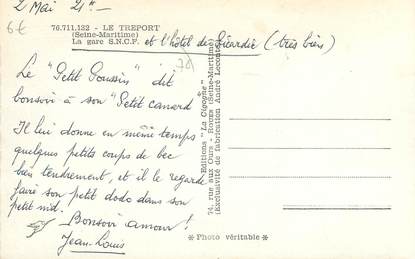 2 Mai 21h —
6€
76.711.132 - LE TREPORT
(Seine-Maritime)
La gare S.N.C.F. et l'hôtel de Picardie (très bien)
76
Le "Petit Poussin" dit
bonsoir à son "Petit canard"
Il lui donne en même temps
quelques petits coups de bec
bien tendrement, et il le regarde
faire son petit dodo dans son
petit nid.
Bonsoir amour !
Jean-Louis
Editions "La Cigogne"
74, rue aux Ours - ROUEN (Seine-Maritime)
(Exclusivité de fabrication André Leconte)
* Photo véritable *